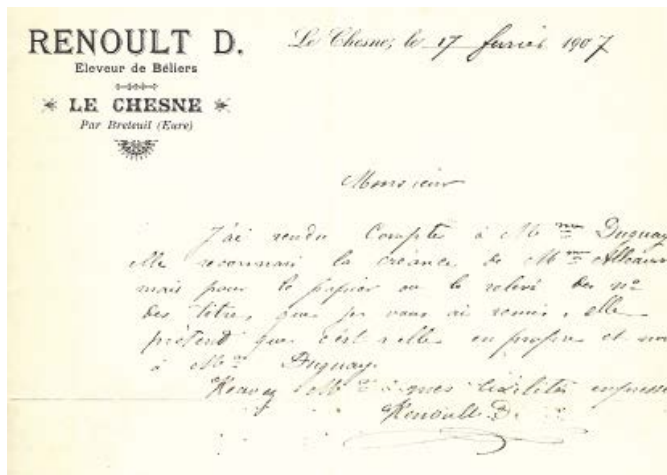 RENOULT D.
Eleveur de Béliers
LE CHESNE
Par Breteuil (Eure)
Le Chesne, le 17 fevrier 1907
Monsieur
J'ai rendu Compte à Mme Duguay
elle reconnais la créance de Mme
mais pour le papier ou le relevé des no
des titres que je vous ai remis, elle
prétend que c'est a elle en propre et non
à Mr Duguay.
Recevez Mr mes civilités empressé
Renoult D.